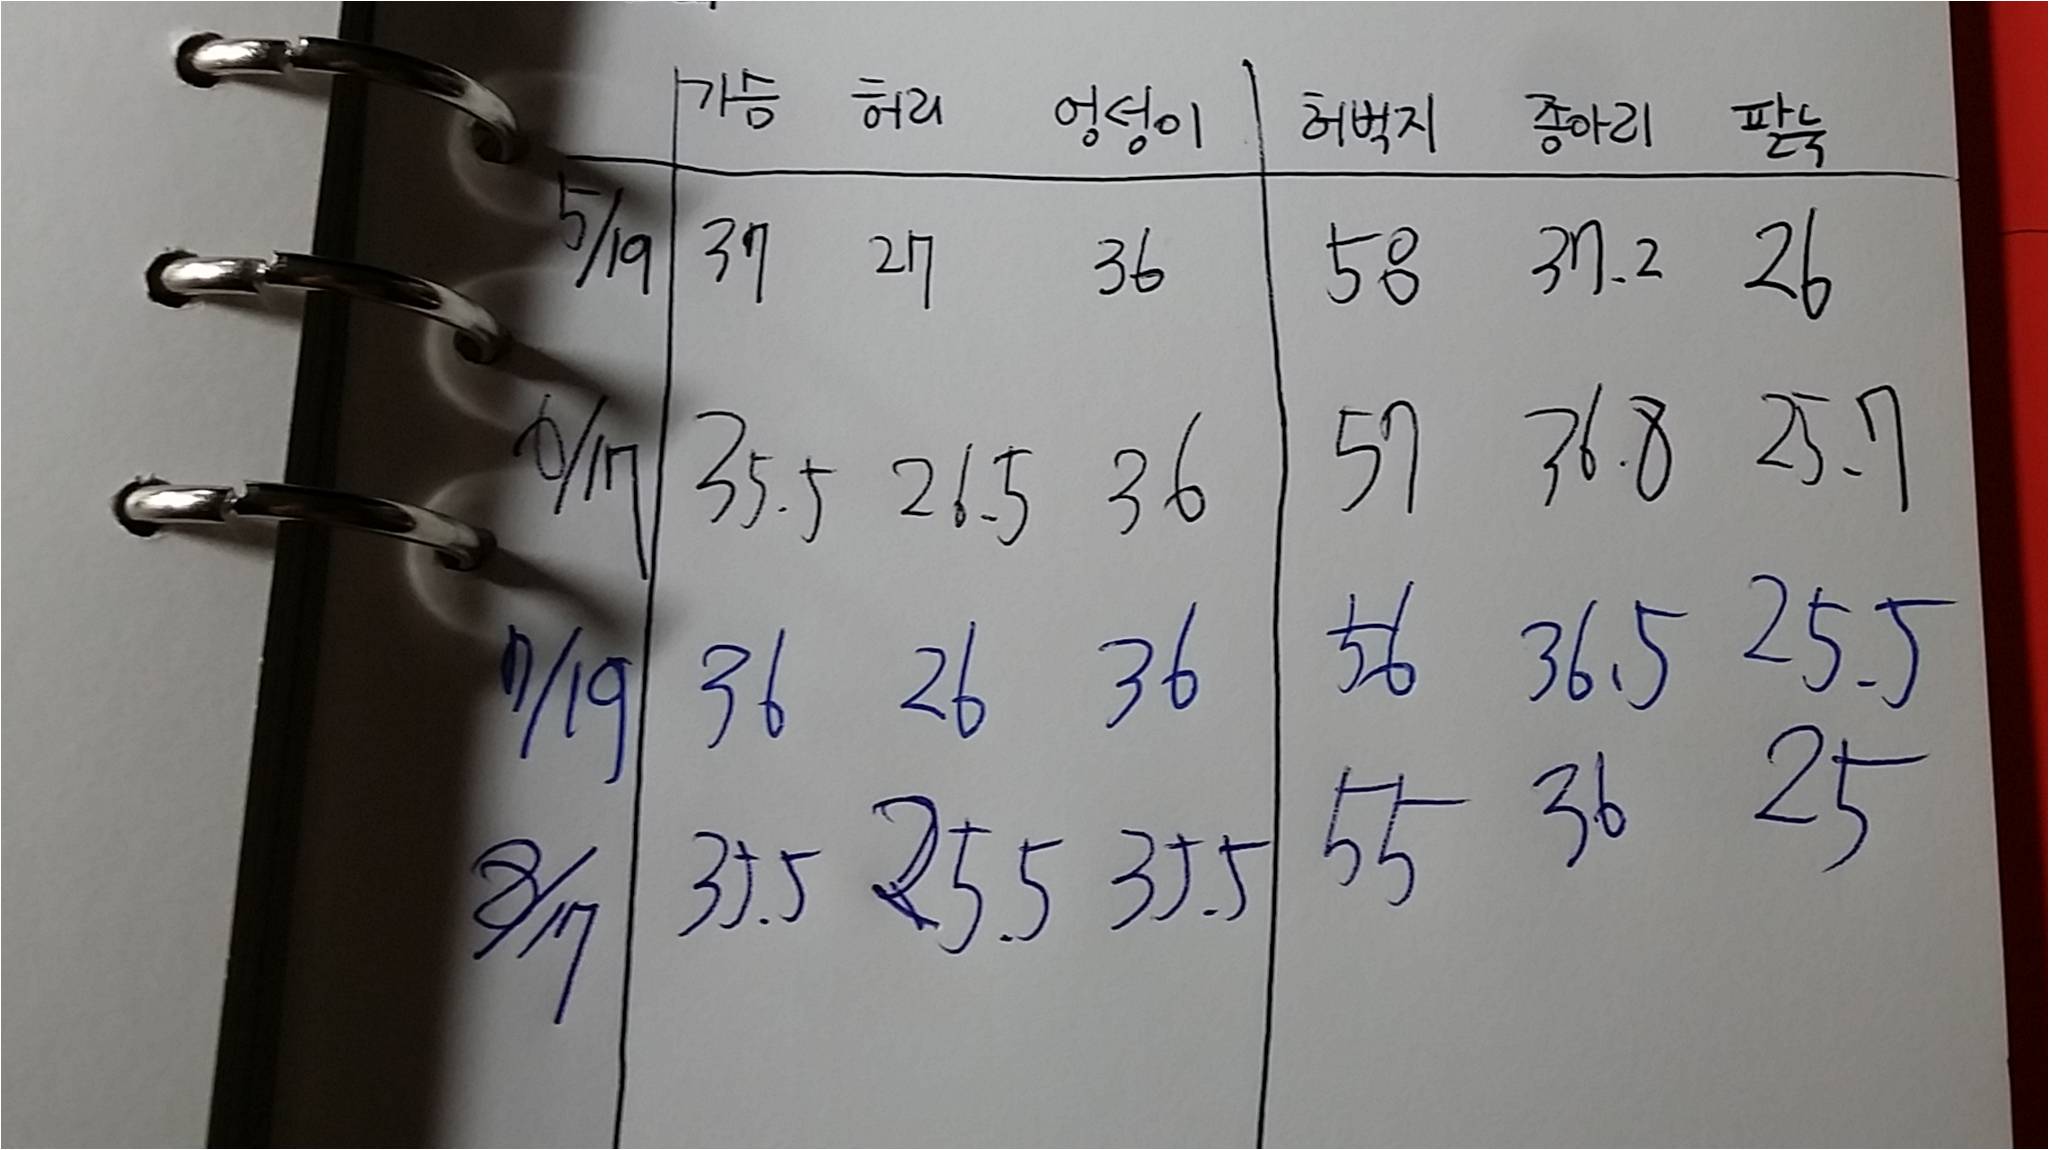 가슴 허리 엉덩이 허벅지 종아리 팔뚝
5/19 37 27 36 58 37.2 26
6/17 35.5 26.5 36 57 36.8 25.7
7/19 36 26 36 56 36.5 25.5
8/17 35.5 25.5 35.5 55 36 25